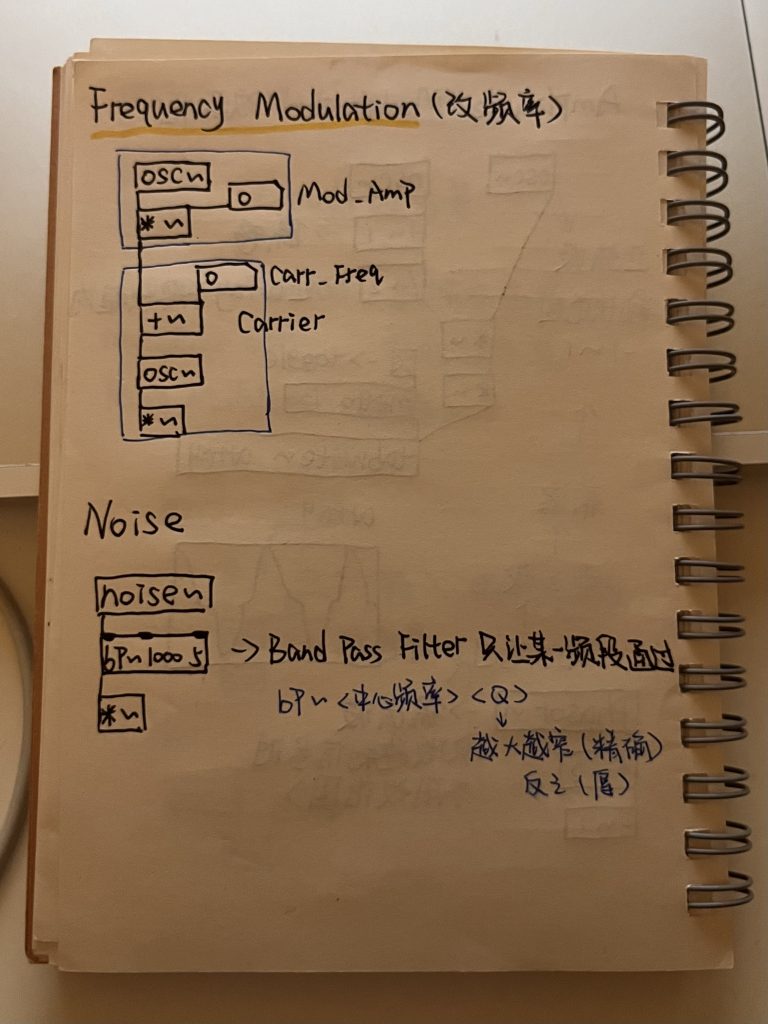 Frequency Modulation (改频率)
osc~
0 Mod_Amp
*~
0 Carr_Freq
+~ Carrier
osc~
*~
Noise
noise~
bp~ 1000 5 -> Band Pass Filter 只让某一频段通过
bp~ <中心频率> <Q>
*~
↓
越大越窄(精确)
反之(厚)